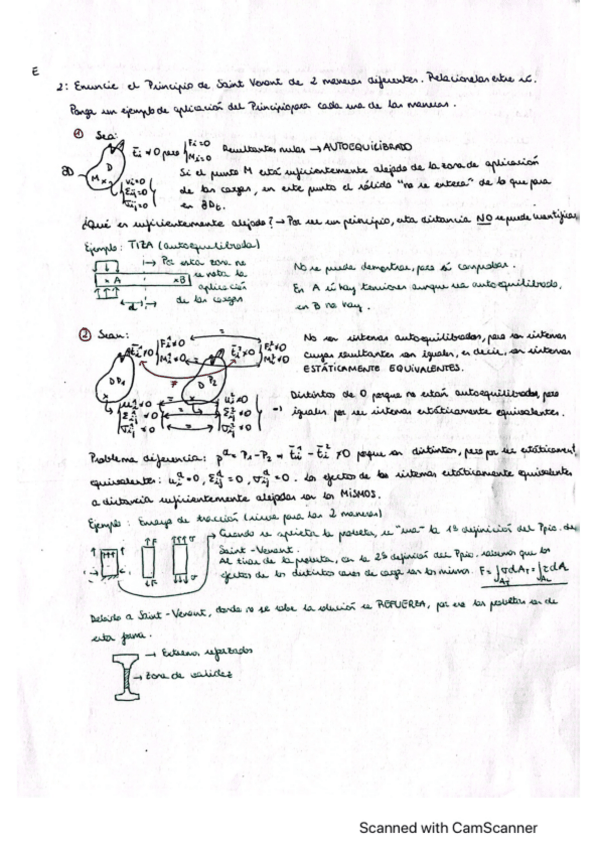 E
2: Enuncie el Principio de Saint Venant de 2 maneras diferentes. Relacionelas entre sí.
Ponga un ejemplo de aplicación del Principio para cada una de las maneras.
① Sea:
t̄i ≠ 0 pero { Fi = 0 Mi = 0 Resultantes nulas → AUTOEQUILIBRADO
∂D D M x
Si el punto M está suficientemente alejado de la zona de aplicación
de las cargas, en este punto el sólido "no se entera" de lo que pasa
en ∂Dt.
¿Qué es suficientemente alejado? → Por ser un principio, esta distancia NO se puede cuantificar
Ejemplo: TIZA (autoequilibrada)
Por esta zona no
se nota la
aplicación
de las cargas
x A x B
d
No se puede demostrar, pero sí comprobar.
En A sí hay tensiones aunque sea autoequilibrado,
en B no hay.
② Sean:
No son sistemas autoequilibrados, pero son sistemas
cuyas resultantes son iguales, es decir, son sistemas
ESTÁTICAMENTE EQUIVALENTES.
Distintos de 0 porque no están autoequilibrados, pero
iguales por ser sistemas estáticamente equivalentes.
Problema diferencia: pᵈ = P1 - P2 ⇒ t̄i¹ - t̄i² ≠ 0 porque son distintos, pero por ser estáticament.
equivalentes: uiᵈ = 0, εijᵈ = 0, σijᵈ = 0. Los efectos de los sistemas estáticamente equivalentes
a distancia suficientemente alejadas son los MISMOS.
Ejemplo: Ensayo de tracción (sirve para las 2 maneras)
Cuando se aprieta la probeta, se "usa" la 1ª definición del Ppio. de
Saint-Venant.
Al tirar de la probeta, con la 2ª definición del Ppio, sabemos que los
efectos de los distintos casos de carga son los mismos. F =
Debido a Saint-Venant, donde no se sabe la solución se REFUERZA, por eso las probetas son de
esta forma.
→ Extremos reforzados
→ Zona de validez
Scanned with CamScanner